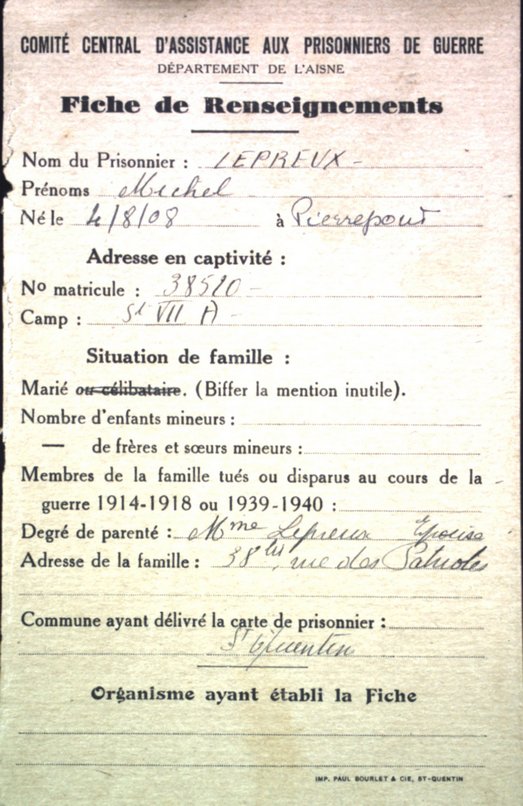 COMITÉ CENTRAL D'ASSISTANCE AUX PRISONNIERS DE GUERRE
DÉPARTEMENT DE L'AISNE
Fiche de Renseignements
Nom du Prisonnier : LEPREUX -
Prénoms Michel
Né le 4/8/08 à Pierrepont
Adresse en captivité :
No matricule : 38510 -
Camp : St VII A -
Situation de famille :
Marié ou célibataire. (Biffer la mention inutile).
Nombre d'enfants mineurs :
— de frères et sœurs mineurs :
Membres de la famille tués ou disparus au cours de la
guerre 1914-1918 ou 1939-1940 :
Degré de parenté : Mme Lepreux Epouse
Adresse de la famille : 38 bis, rue des Patriotes
Commune ayant délivré la carte de prisonnier :
St Quentin
Organisme ayant établi la Fiche
IMP. PAUL BOURLET & CIE, ST-QUENTIN